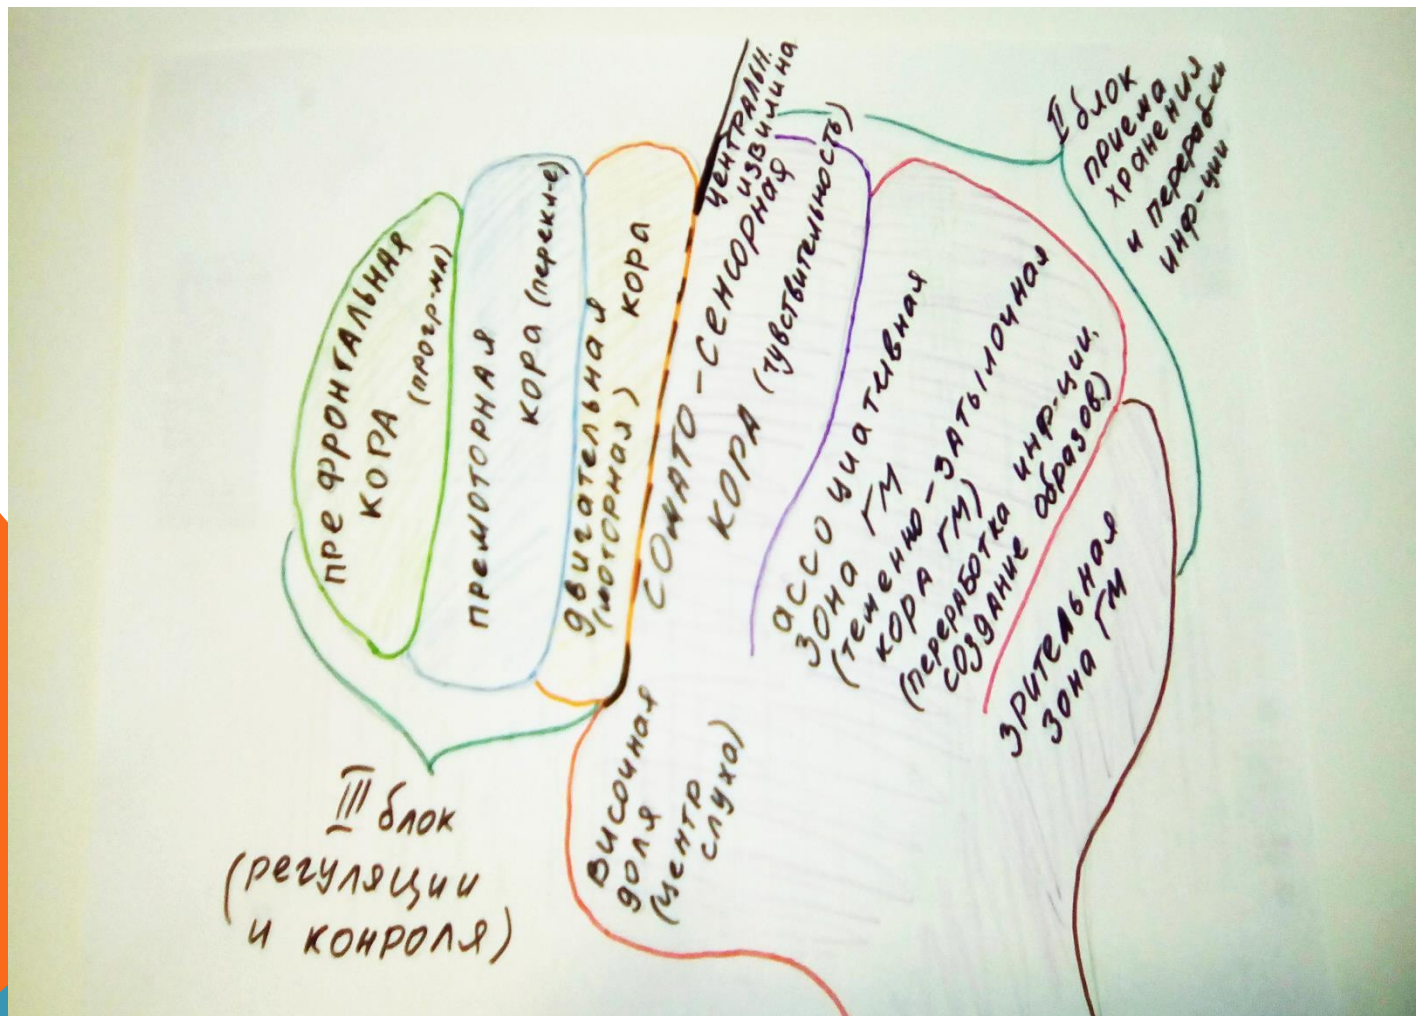 ПРЕФРОНТАЛЬНАЯ
КОРА
(ПРОГР-МА)
ПРЕМОТОРНАЯ
КОРА (перекл-е)
двигательная
(моторная)
КОРА
ЦЕНТРАЛЬН.
ИЗВИЛИНА
СОМАТО-СЕНСОРНАЯ
КОРА (чувствительность)
АССОЦИАТИВНАЯ
ЗОНА ГМ
(теменно-затылочная
КОРА ГМ)
(переработка инф-ции.
создание образов.)
ЗРИТЕЛЬНАЯ
ЗОНА ГМ
ВИСОЧНАЯ
ДОЛЯ
(центр
слуха)
II блок
приема
хранения
и перерабки
инф-ции
III блок
(регуляции
и конроля)